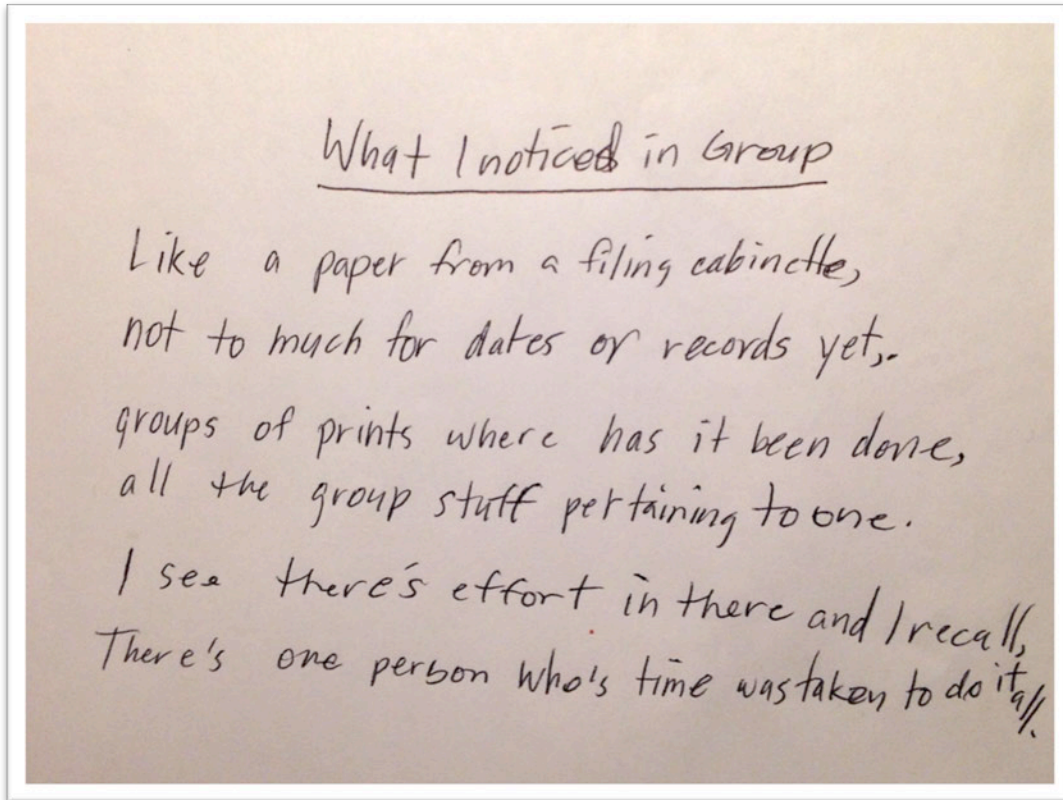 What I noticed in Group
Like a paper from a filing cabinette,
not to much for dates or records yet,.
groups of prints where has it been done,
all the group stuff pertaining to one.
I see there's effort in there and I recall,
There's one person who's time was taken to do it all.